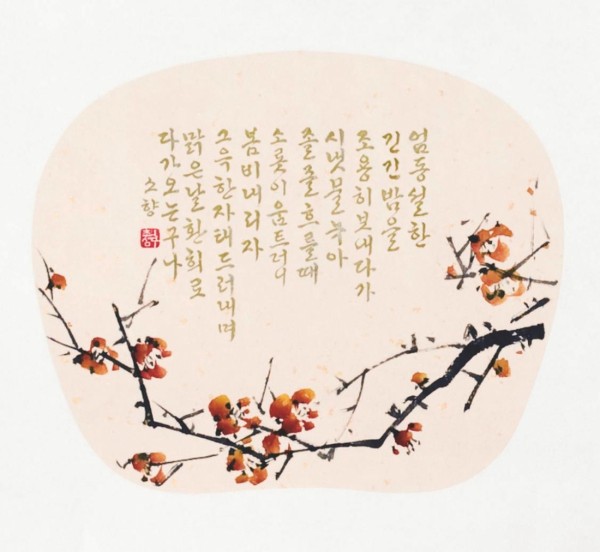 엄동설한
긴긴밤을
조용히보내다가
시냇물녹아
졸졸흐를때
소롯이움트러니
봄비내리자
그윽한자태드러내며
맑은날환희로
다가오는구나
소향